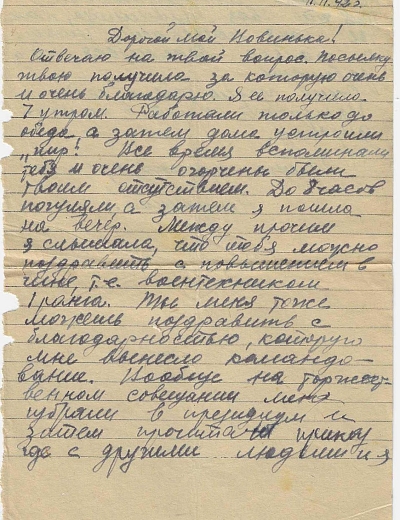 11.11.42г.
Дорогой мой Новинька!
Отвечаю на твой вопрос. Посылку
твою получила за которую очень
и очень благодарю. Я её получила
7 утром. Работали только до
обеда а затем дома устроили
„пир! Все время вспоминали
тебя и очень огорчены были
твоим отсутствием. До 8 часов
погуляли а затем я пошла
на вечер. Между прочим
я слышала, что тебя можно
поздравить с повышением в
чине, т.е. воентехником
I ранга. Ты меня тоже
можешь поздравить с
благодарностью, которую
мне вынесло командо-
вание. Вообще на торжест-
венном совещании меня
избрали в президиум и
затем прочитали приказ
где с другими людьми и я